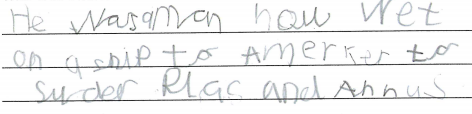 He wasaman how wet
on a ship to Amerker to
surder Plac and Annus